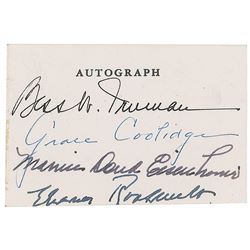 AUTOGRAPH
Bess W. Truman
Grace Coolidge
Mamie Doud Eisenhower
Eleanor Roosevelt